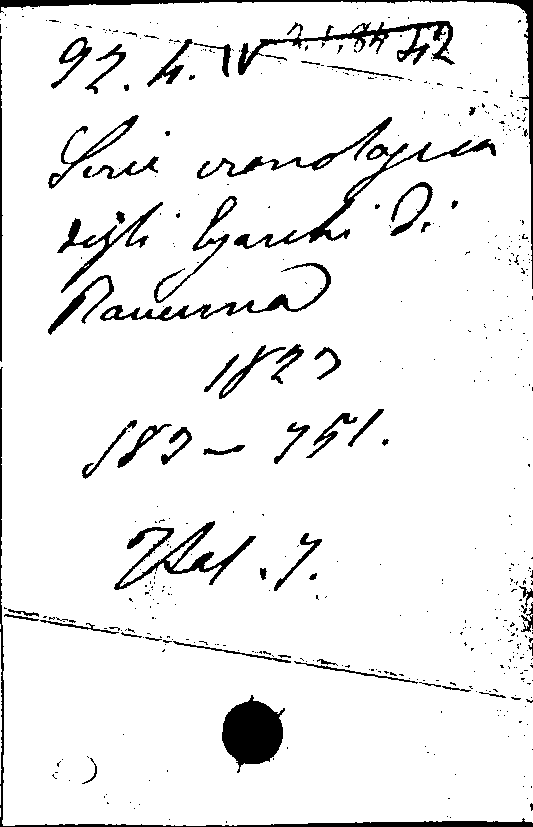 92. h. IV 2.1.84 42
Serie cronologica
degli Esarchi di
Ravenna
1822
583 – 751.
Ital. 7.